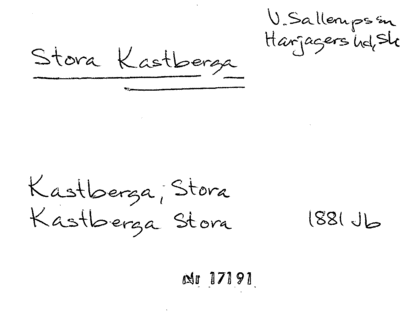 V. Sallerups sn
Harjagers hd, Sk
Stora Kastberga
Kastberga, Stora
Kastberga Stora 1881 Jb
Nr 17191